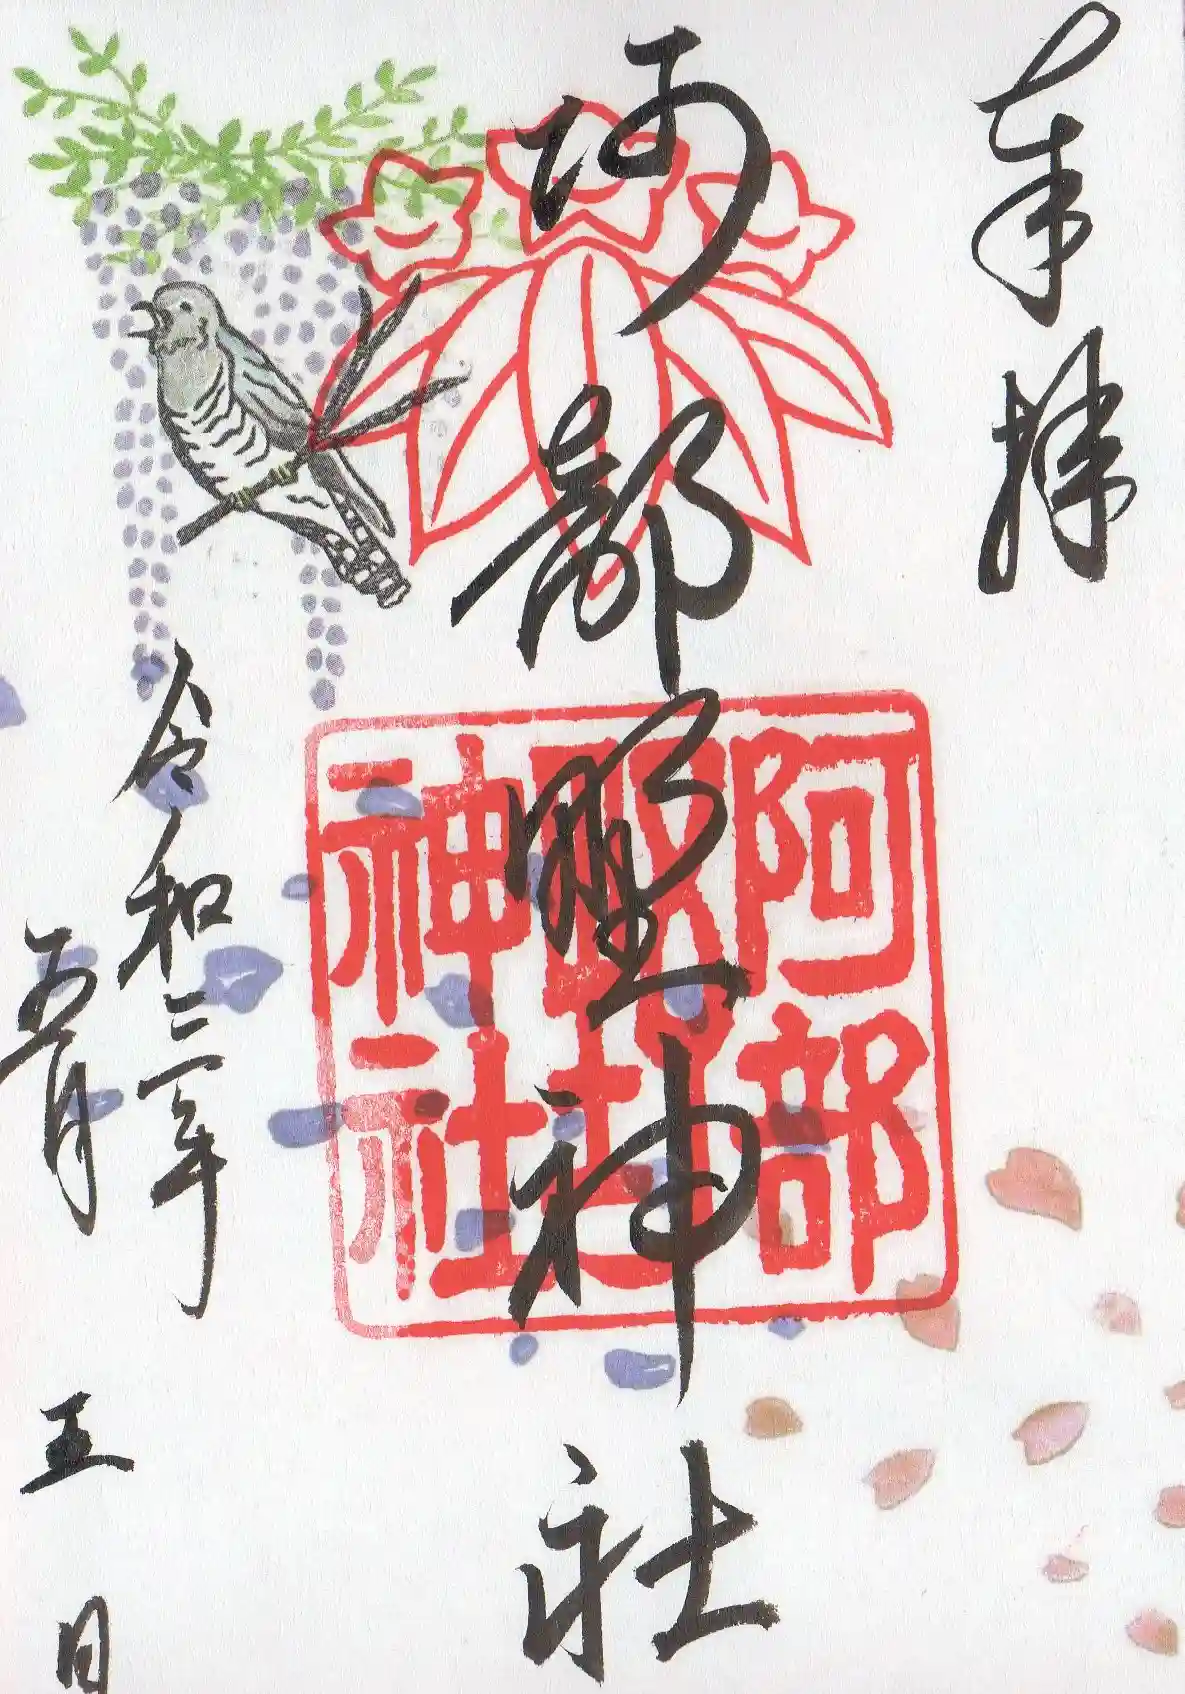 奉拝
阿部野神社
阿部
野
神社
令和三年
五月五日